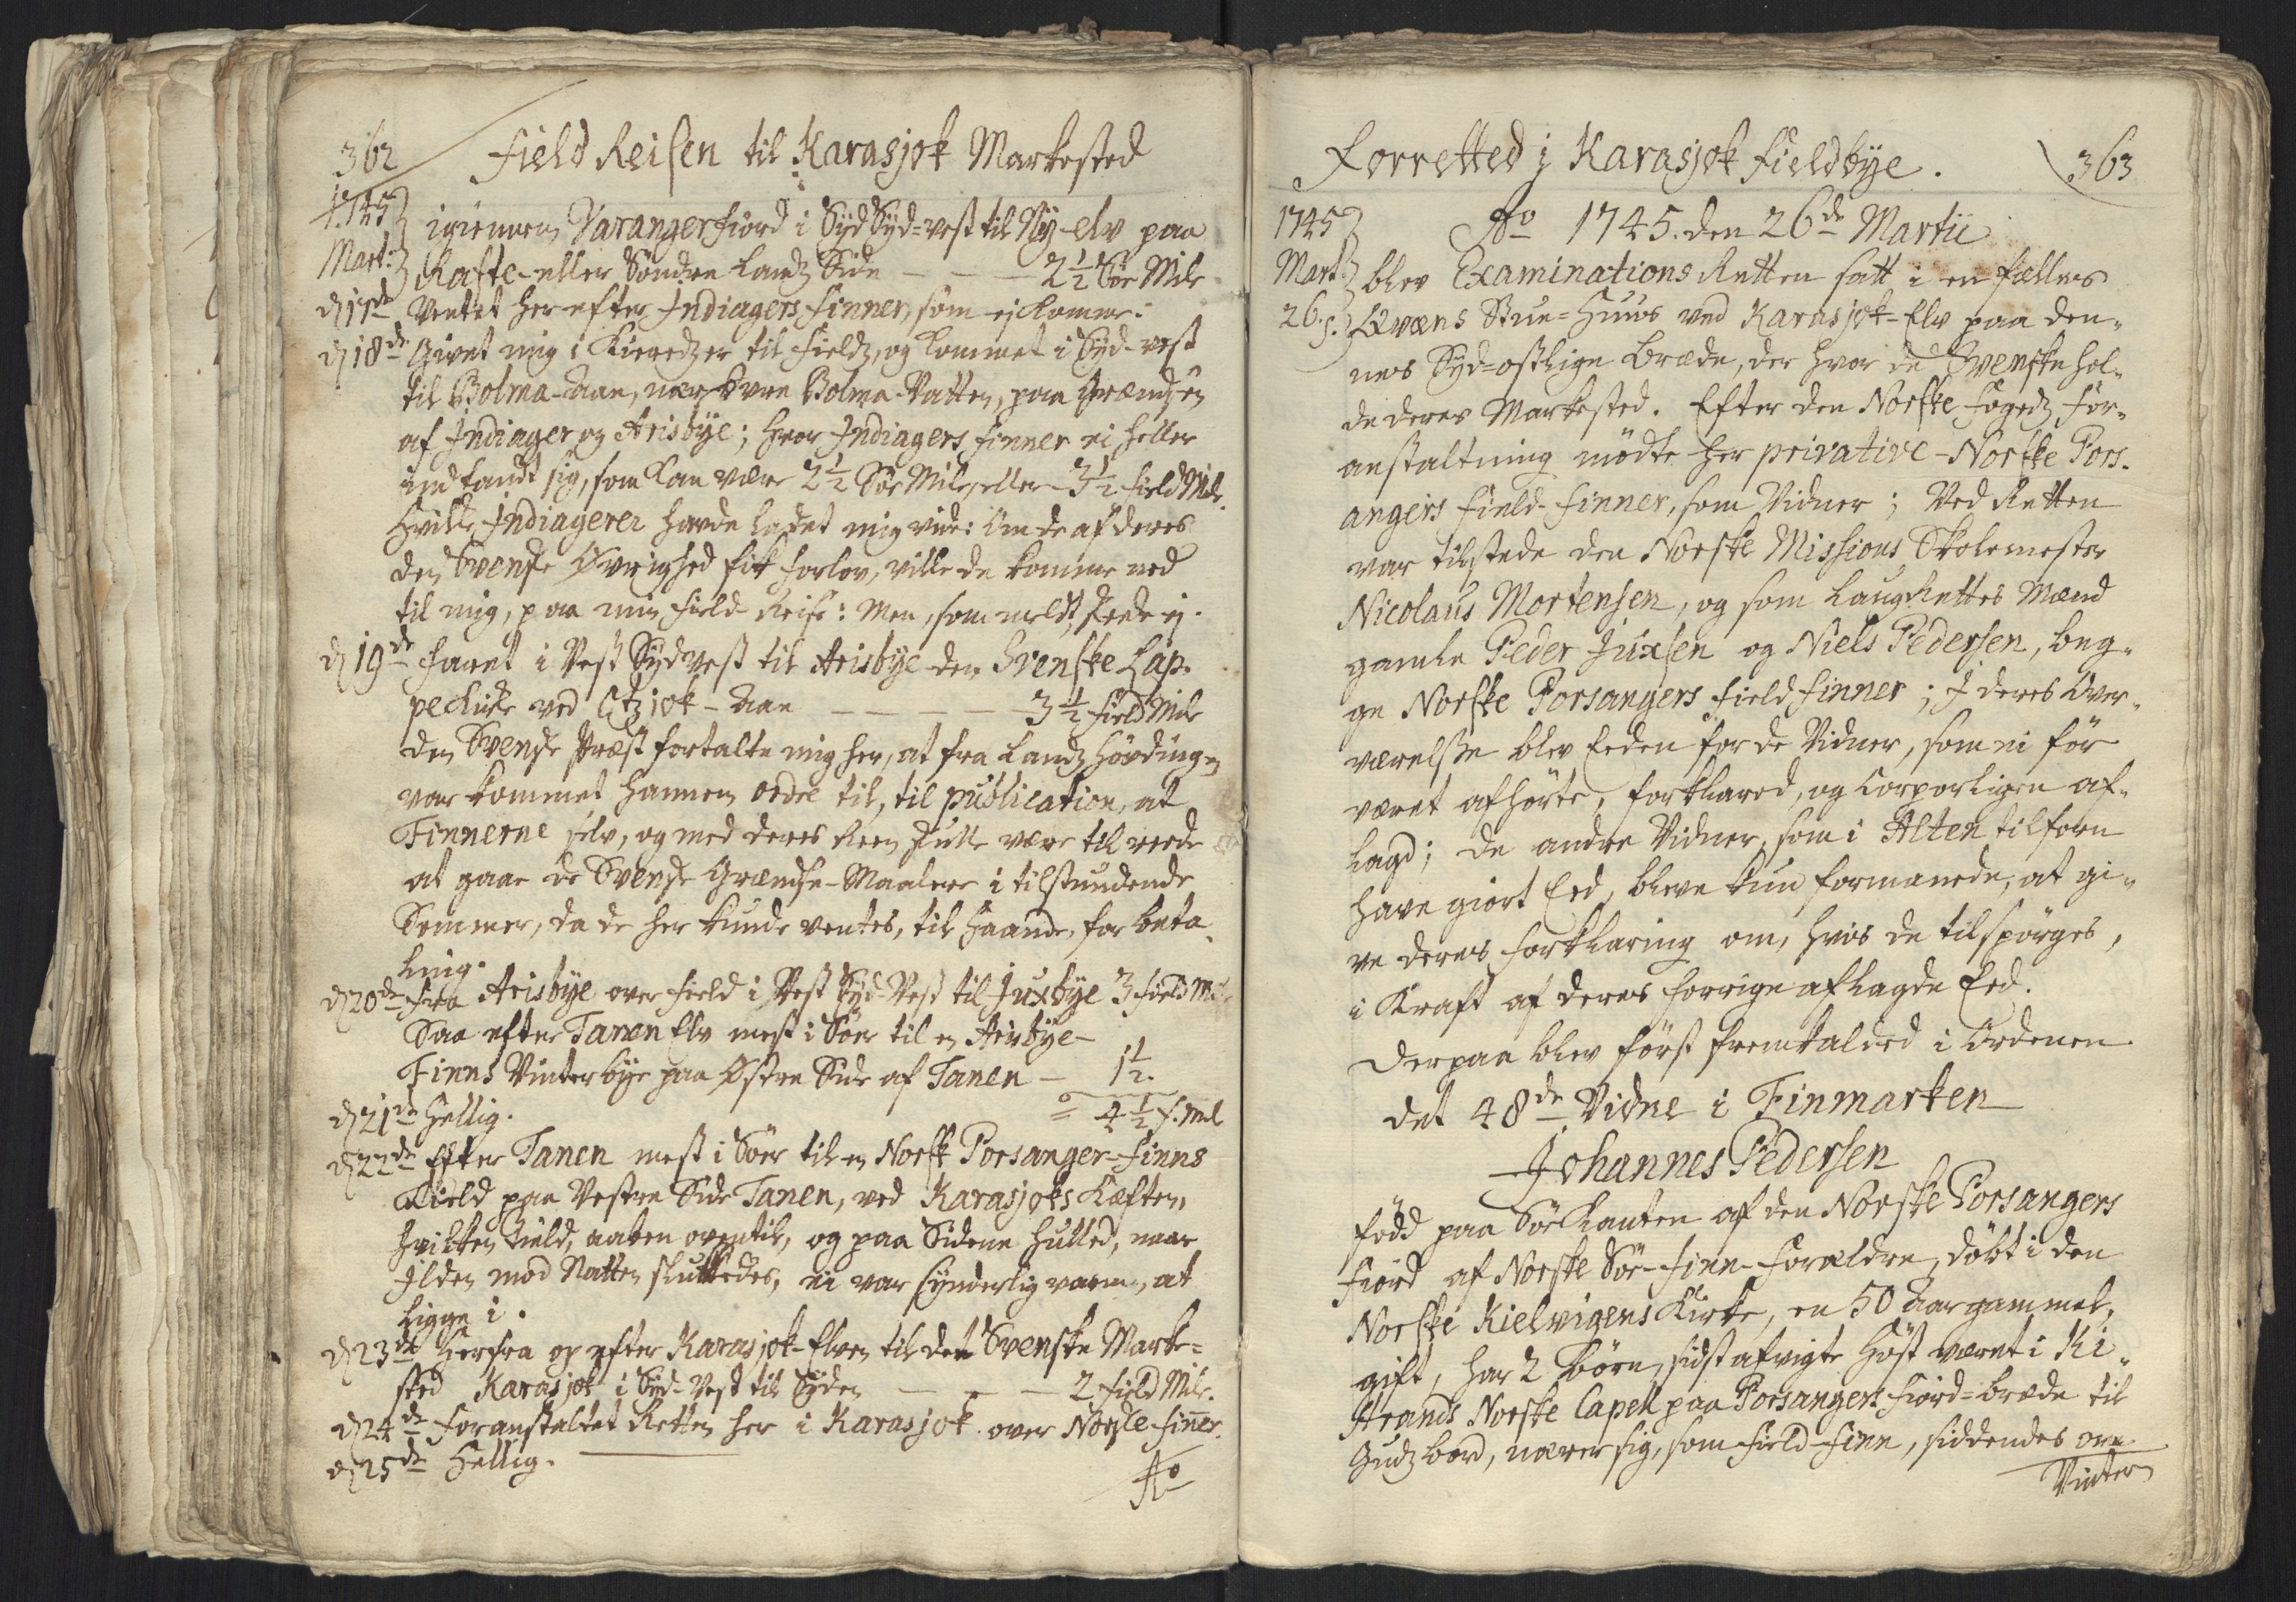 362
Field Reisen til Karasjok Markested
1745
Mart:
igiennem Varangerfiord i Syd Syd-vest til Ny-elv paa
Rafte- eller Søndre Landz Side — — 2 1/2 Søe Mile
d 17de Ventet her efter Indiagers Finner, som ej komme.
d 18de Givet mig i Kieredzer til Fieldz, og kommet i Syd-vest
til Polma-Aae, nær hvre Polma-Vatten, paa Grændsen
af Indiager og Arisbye; hvor Indiagers Finner ei heller
indfandt sig, som kan være 2 1/2 Søe Mile, eller 3 1/2 Field Mile.
Hvilke Indiagerer havde ladet mig vide: Om de af deres
den Svenske Øvrighed fik Forlov, ville de komme ned
til mig, paa min Field-Reise: Men, som meldt, skede ej.
d 19de Faret i Vest Sydvest til Arisbye den Svenske Lap-
pe Kirke ved Utzjok-Aae — — — 3 1/2 Field Mile
Den Svenske Præst fortalte mig her, at fra Landz Høvdingen
var kommet hannem ordre til, til publication, at
Finnerne selv, og med deres Reen skulle være til rede
at gaae de Svenske Grændse-Maalere i tilstundende
Sommer, da de her kunde ventes, til Haande, for beta-
ling.
d 20de Fra Arisbye over Field i Vest Syd-Vest til Juxbye 3 Field Mil
Saa efter Tanen Elv mest i Søer til en Arisbye-
Finns Vinterbye paa Østre Side af Tanen — 1 1/2.
= 4 1/2 F. Mil
d 21de Hellig.
d 22de Efter Tanen mest i Søer til en Norsk Porsanger-Finns
Tield paa Vestre Side Tanen, ved Karasjoks Kæften,
hvilken Tield, aaben oventil, og paa Sidene hulled, naar
Ilden mod Natten sluttedes, ei var synderlig varm, at
ligge i.
d 23de Herfra op efter Karasjok-Elven til det Svenske Marke-
sted Karasjok i Syd-Vest til Syden — — — 2 Field Mile.
d 24de Foranstaltet Retten her i Karasjok over Norske Finner.
d 25de Hellig.
Ao
Forretted i Karasjok Fieldbye.
363
1745
Mart
26. s.
Ao 1745. den 26de Martii
blev Examinations Retten satt i en fælles
Qvæns Stue-Huus ved Karasjok-Elv paa den-
nes Syd-ostlige Bræde, der hvor de Svenske hol-
de deres Markested. Efter den Norske Fogedz For-
anstaltning mødte her privative-Norske Pors-
angers Field-Finner, som Vidner; Ved Retten
var tilstede den Norske Missions Skolemester
Nicolaus Mortensen, og som Laug-Rettes Mænd
gamle Peder Juxsen og Niels Pedersen, beg-
ge Norske Porsangers Field Finner; I deres Over-
værelse blev Eeden for de Vidner, som ei før
været afhørte, forklared, og Corporligen af-
lagd; de andre Vidner, som i Alten tilforn
have giort Eed, bleve kun formanede, at gi-
ve deres Forklaring om, hvis de tilspørges,
i Kraft af deres forrige aflagde Eed.
Derpaa blev først fremkalded i Ordenen
det 48de Vidne i Finmarken
Johannes Pedersen
fødd paa Søe Kanten af den Norske Porsangers
Fiord af Norske Søe-Finn-Forældre, døbt i den
Norske Kielvigens Kirke, en 50 Aar gammel,
gift, har 2 Børn, sidst afvigte Høst været i Ki-
strands Norske Capell paa Porsangers Fiord-bræde til
Gudz bord, nærer sig, som Field-Finn, siddendes om
Vinter